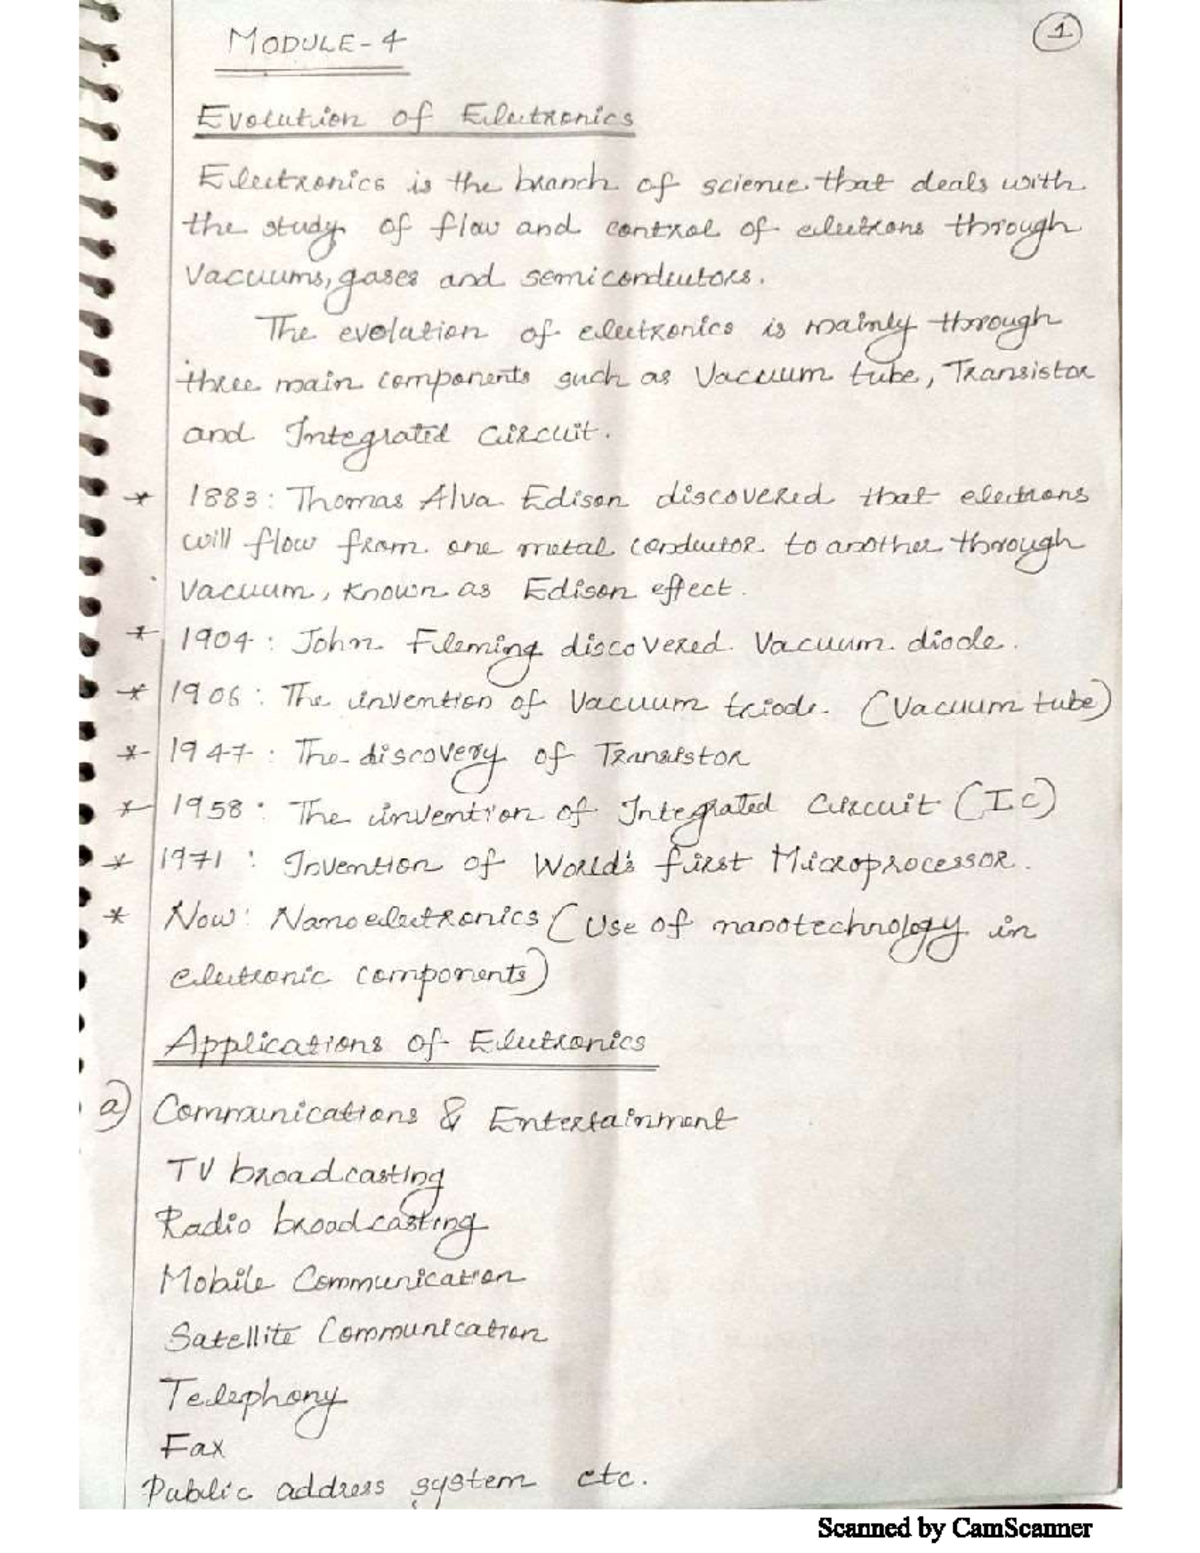 1
MODULE-4
Evolution of Electronics
Electronics is the branch of science that deals with
the study of flow and control of electrons through
Vacuums, gases and semiconductors.
The evolution of electronics is mainly through
three main components such as Vacuum tube, Transistor
and Integrated Circuit.
* 1883: Thomas Alva Edison discovered that electrons
will flow from one metal conductor to another through
vacuum, known as Edison effect.
* 1904: John Fleming discovered Vacuum diode.
* 1906: The invention of Vacuum triode. (Vacuum tube)
* 1947: The discovery of Transistor
* 1958: The invention of Integrated Circuit (IC)
* 1971: Invention of World's first Microprocessor.
* Now: Nanoelectronics (Use of nanotechnology in
electronic components)
Applications of Electronics
a) Communications & Entertainment
TV broadcasting
Radio broadcasting
Mobile Communication
Satellite Communication
Telephony
Fax
Public address system etc.
Scanned by CamScanner